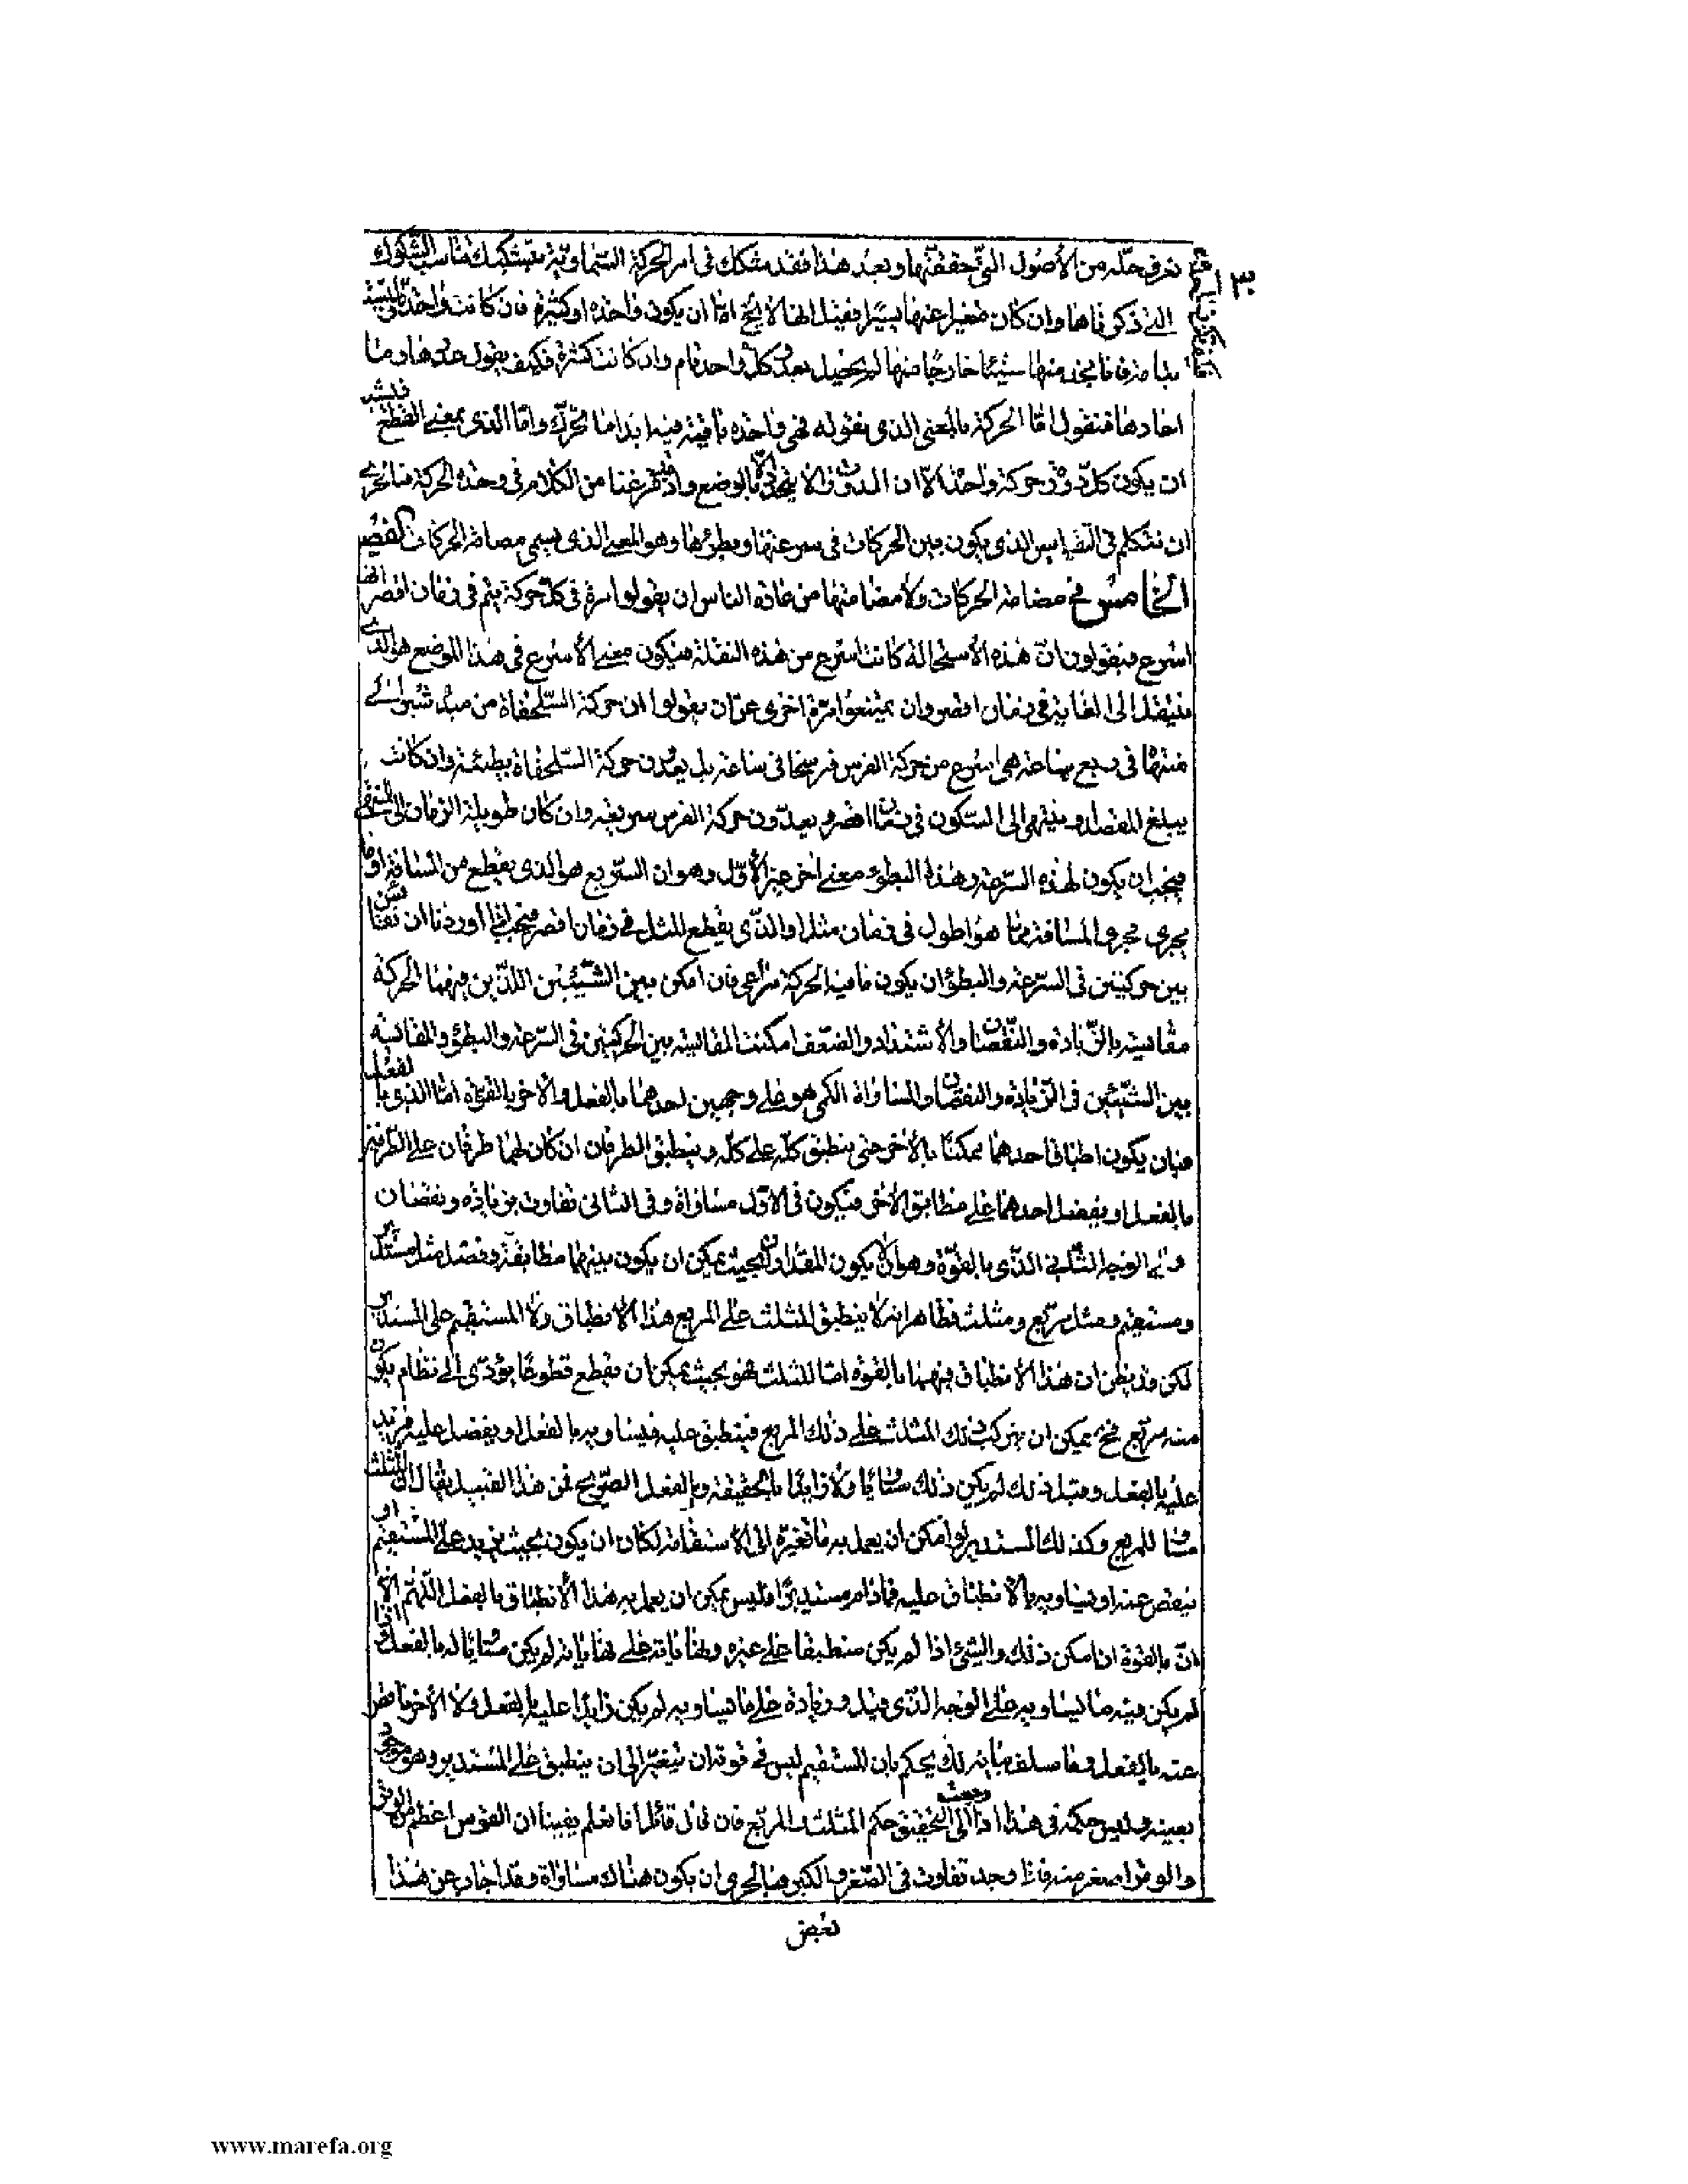 تعرف حله من الأصول التى حققتها وبعد هذا فقد تشكك فى امر الحركة السماوية بتشكيك مناسب الشكوك
التى ذكرناها وان كان مغيرا عنها يسيرا فقيل انها لا يخ اما ان يكون واحدة او كثيرة فان كانت واحدة
فانا نجد منها شيئا خارجا منها لم يحصل بعد وكل واحد تام وان كانت كثرة فكيف يقول عددها وما
احادها فنقول اما الحركة بالمعنى الذى نقوله فهى واحدة باقية فيه ابدا ما تحرك واما الذى بمعنى القطع فيشبه
ان يكون كل دورة حركة واحدة الا ان الدورة لا يتحدد الا بالوضع واذ فرغنا من الكلام فى وحدة الحركة فبالحرى
ان نتكلم فى التقايس الذى يكون بين الحركات فى سرعتها وبطؤها وهو المعنى الذى يسمى مضامة الحركات الفصل
الخامس فى مضامة الحركات ولا مضامتها من عادة الناس ان يقولوا مرة فى كل حركة يتم فى زمان اقصر انها
اسرع فيقولون ان هذه الأستحالة كانت اسرع من هذه النقلة فيكون معنى الأسرع فى هذا الموضع هو الذى
ينتقل الى الغاية فى زمان اقصر وان يمتنعوا مرة اخرى عن ان يقولوا ان حركة السلحفاة من مبدء شبر الى
منتهاه فى ربع ساعة هى اسرع من حركة الفرس فرسخا فى ساعة بل يعدون حركة السلحفاة بطيئة وان كانت
يبلغ المقصد وينتهى الى السكون فى زمان اقصر ويعدون حركة الفرس سريعة وان كان طويلة الزمان الى المنتهى
فيجب ان يكون لهذه السرعة وهذا البطوء معنى اخر غير الأول وهو ان السريع هو الذى يقطع من المسافة او ما
يجرى مجرى المسافة ما هو اطول فى زمان مثله او الذى يقطع المثل فى زمان اقصر فيجب اذا اوردنا ان نقايس
بين حركتين فى السرعة والبطؤ ان يكون ما فيه الحركة يراعى فان امكن بين الشيئين اللذين فيهما الحركة
مقايسة بالزيادة والنقصان والأشتداد والضعف امكنت المقايسة بين الحركتين فى السرعة والبطؤ والمقايسة
بين الشيئين فى الزيادة والنقصان والمساواة الكمى هو على وجهين احدهما بالفعل والأخر بالقوة اما الذى بالفعل
فبان يكون اطباق احدهما ممكنا بالأخر حتى ينطبق كله على كله وينطبق الطرفان ان كان لهما طرفان على الطرفين
بالفعل او يفضل احدهما على مطابق الأخر فيكون فى الأول مساواة وفى الثانى تفاوت بزيادة ونقصان
والوجه الثانى الذى بالقوة وهو ان لا يكون المقداران بحيث يمكن ان يكون بينهما مطابقة وفصل مثل مستدير
ومستقيم ومثل مربع ومثلث فظاهر انه لا ينطبق المثلث على المربع هذا الأنطباق ولا المستقيم على المستدير
لكن قد يظن ان هذا الأنطباق فيهما بالقوة اما المثلث فهو بحيث يمكن ان يقطع قطوعا يؤدى الى نظام يكون
منه مربع فح يمكن ان يتركب ذلك المثلث على ذلك المربع فينطبق عليه فيساويه بالفعل او يفضل عليه فيزيد
عليه بالفعل وقبل ذلك لم يكن ذلك مساويا ولا زايدا بالحقيقة وبالفعل الصريح فمن هذا القبيل يقال ان المثلث
مساو للمربع وكذلك المستدير لو امكن ان يعمل به ما تغيره الى الأستقامة لكان ان يكون بحيث يزيد على المستقيم او
ينقص عنه او يساويه بالأنطباق عليه فما دام مستديرا فليس يمكن ان يعمل به هذا الأنطباق بالفعل اللهم الا
ان بالقوة ان امكن ذلك والشئ اذا لم يكن منطبقا على غيره ونهاياته على نهاياته لم يكن مساويا له بالفعل اذا
لم يكن فيه ما يساويه على الوجه الذى قيل وزيادة على ما يساويه لم يكن زايدا عليه بالفعل ولا الأخر ناقص
عنه بالفعل وما سلف بيانه لك يحكم بان المستقيم ليس فى قوته ان يتغير الى ان ينطبق على المستدير وهو موجود
بعينه وليس حكمه فى هذا اذا الى التحقيق حكم المثلث والمربع فان قال قائل انا نعلم يقينا ان القوس اعظم من الوتر
والوتر اصغر منه فاذا وجد تفاوت فى الصغر والكبر فبالحرى ان يكون هناك مساواة وقد اجاب عن هذا
بعض
www.marefa.org